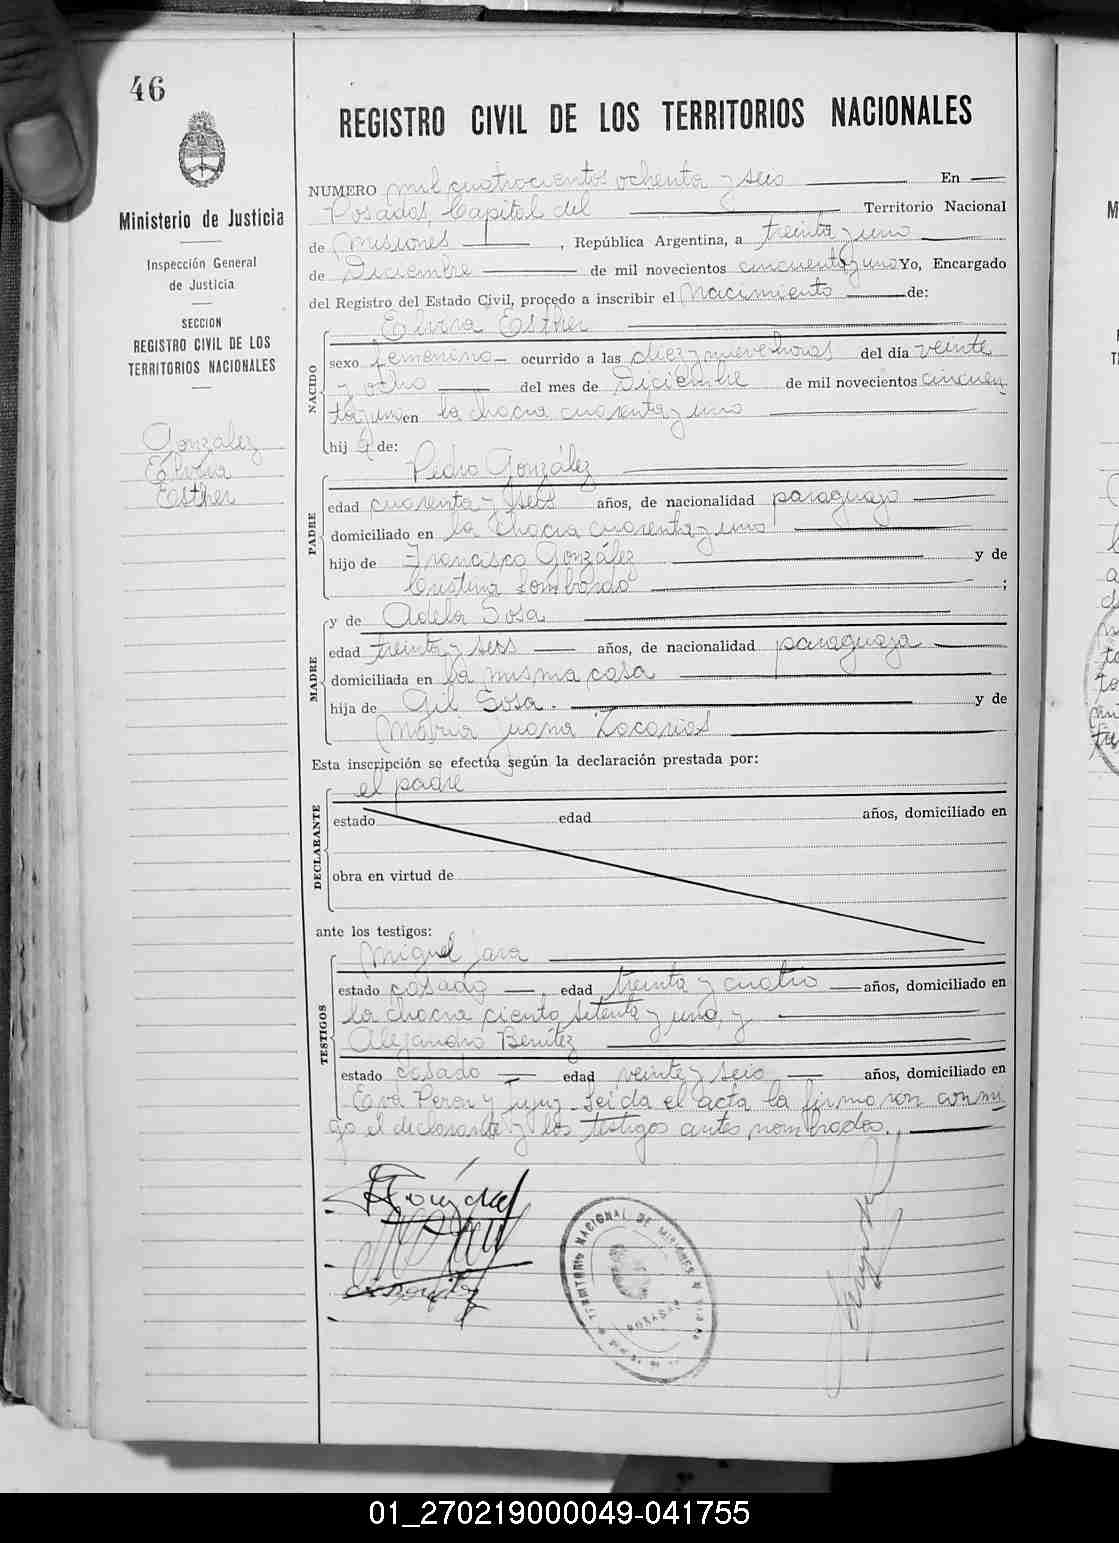 46
REGISTRO CIVIL DE LOS TERRITORIOS NACIONALES
Ministerio de Justicia
Inspección General
de Justicia
SECCION
REGISTRO CIVIL DE LOS
TERRITORIOS NACIONALES
González
Elvira
Esther
NUMERO mil cuatrocientos ochenta y seis En
Posadas, Capital del Territorio Nacional
de Misiones, República Argentina, a treinta y uno
de Diciembre de mil novecientos cincuenta y uno Yo, Encargado
del Registro del Estado Civil, procedo a inscribir el Nacimiento de:
NACIDO
Elvira Esther
sexo femenino ocurrido a las diez y nueve horas del día veinte
y ocho del mes de Diciembre de mil novecientos cincuen
ta y uno en la chacra cuarenta y uno
hija de:
PADRE
Pedro González
edad cuarenta y seis años, de nacionalidad paraguayo
domiciliado en la chacra cuarenta y uno
hijo de Francisco González y de
Cristina Lombardo;
MADRE
y de Adela Sosa
edad treinta y seis años, de nacionalidad paraguaya
domiciliada en la misma casa
hija de Gil Sosa. y de
María Juana Zacarías
Esta inscripción se efectúa según la declaración prestada por:
DECLARANTE
el padre
estado edad años, domiciliado en
obra en virtud de
ante los testigos:
TESTIGOS
Miguel Jara
estado casado edad treinta y cuatro años, domiciliado en
la chacra ciento setenta y uno, y
Alejandro Benítez
estado casado edad veinte y seis años, domiciliado en
Eva Perón y Jujuy. Leída el acta la firmaron conmi
go el declarante y los testigos antes nombrados.
TERRITORIO NACIONAL DE MISIONES
POSADAS
01_270219000049-041755